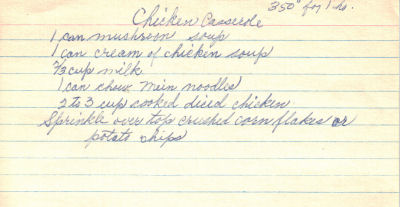 350° for 1 hr.
Chicken Casserole
1 can mushroom soup
1 can cream of chicken soup
2/3 cup milk
1 can chow mein noodles
2 to 3 cup cooked diced chicken
Sprinkle over top crushed corn flakes or
potato chips